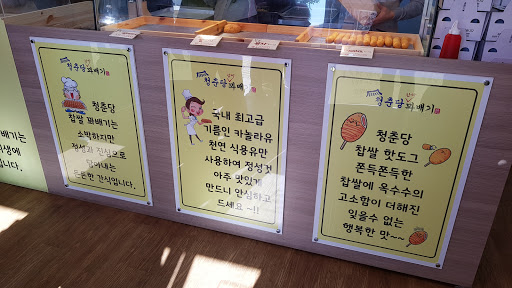 배기는
생에
입니다.
청춘당꽈배기
청춘당
찹쌀 꽈배기는
소박하지만
정성과 진심으로
든든한 간식입니다.
청춘당꽈배기
국내 최고급
기름인 카놀라유
천연 식용유만
사용하여 정성껏
아주 맛있게
만드니 안심하고
드세요 ~!!
청춘당꽈배기
청춘당
찹쌀 핫도그
쫀득쫀득한
찹쌀에 옥수수의
고소함이 더해진
잊을수 없는
행복한 맛~~